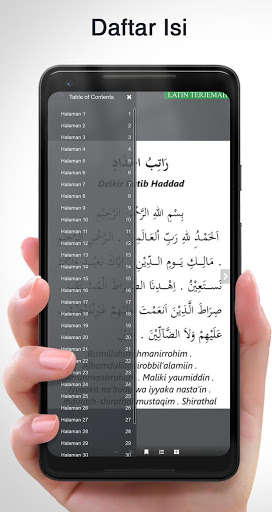 Daftar Isi
Table of Contents ×
LATIN TERJEMAH
Halaman 1 1
Halaman 2 2
Halaman 3 3
Halaman 4 4
Halaman 5 5
Halaman 6 6
Halaman 7 7
Halaman 8 8
Halaman 9 9
Halaman 10 10
Halaman 11 11
Halaman 12 12
Halaman 13 13
Halaman 14 14
Halaman 15 15
Halaman 16 16
Halaman 17 17
Halaman 18 18
Halaman 19 19
Halaman 20 20
Halaman 21 21
Halaman 22 22
Halaman 23 23
Halaman 24 24
Halaman 25 25
Halaman 26 26
Halaman 27 27
Halaman 28 28
Halaman 29 29
Halaman 30 30
رَاتِبُ الحَدَّادِ
Dzikir Ratib Haddad
بِسْمِ اللهِ الرَّحْمٰنِ الرَّحِيْمِ
اَلْحَمْدُ لِلهِ رَبِّ الْعَالَمِيْنَ . الرَّحْمٰنِ
. مَالِكِ يَوْمِ الدِّيْنِ . إِيَّاكَ نَعْبُدُ
نَسْتَعِيْنُ . اِهْدِنَا الصِّرَاطَ
صِرَاطَ الَّذِيْنَ اَنْعَمْتَ عَلَيْهِمْ غَيْرِ
عَلَيْهِمْ وَلاَ الضَّالِّيْنَ .
Bismillahirrohmanirrohim .
Alhamdulillahi robbil'alamiin
. Maliki yaumiddin .
Iyyaka na'budu wa iyyaka nasta'in .
Ihdinash-shirathal mustaqim . Shirathal